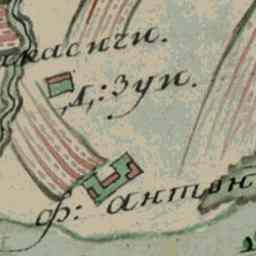 касичи.
Д: Зуи.
ф: антон